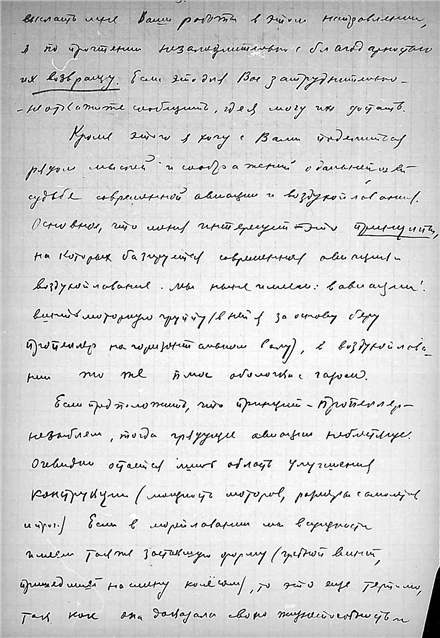 выслать мне Ваши работы в этом направлении,
я по прочтении незамедлительно с благодарностью
их возвращу. Если это для Вас затруднительно -
- не откажите сообщить, где я могу их достать.
Кроме этого я хочу с Вами поделиться
рядом мыслей и соображений о дальнейшей
судьбе современной авиации и воздухоплавания.
Основное, что меня интересует это принципы,
на которых базируется современная авиация и
воздухоплавание. Мы ныне имеем: в авиации:
винтомоторную группу (в ней я за основу беру
пропеллер на горизонтальном валу), в воздухоплава-
нии то же плюс оболочка с газом.
Если предположить, что принцип - пропеллер -
незыблем, тогда грядущее авиации неблестяще.
Очевидно остается лишь область улучшения
конструкции (мощность моторов, размеры самолетов
и проч.) Если в мореплавании мы в сущности
имеем также застывшую форму (гребной винт,
пришедший на смену колёсам), то это еще терпимо,
так как она доказала свою жизнеспособность и